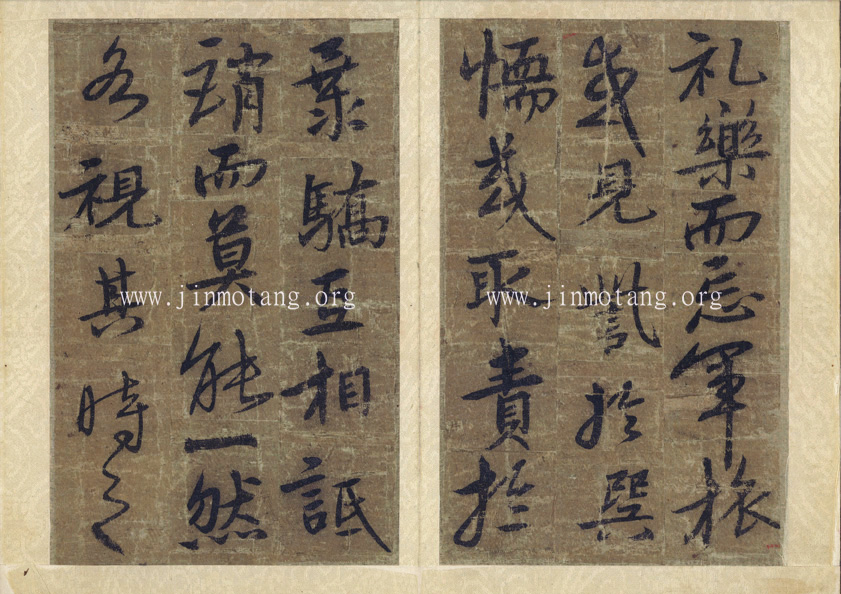 礼樂而忘軍旅
或見譏於巽
懦或取責於
桀驕互相詆
誚而莫能一然
各視其時之
www.jinmotang.org
www.jinmotang.org